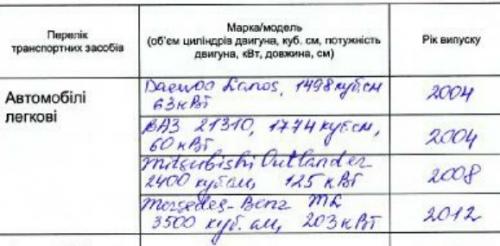 Перелік
транспортних засобів
Марка/модель
(об'єм циліндрів двигуна, куб. см, потужність
двигуна, кВт, довжина, см)
Рік випуску
Автомобілі
легкові
Daewoo Lanos, 1498 куб.см
63 кВт
2004
ВАЗ 21310, 1774 куб.см,
60 кВт
2004
Mitsubishi Outlander
2400 куб.см, 125 кВт
2008
Mercedes-Benz ML
3500 куб. см, 203 кВт
2012